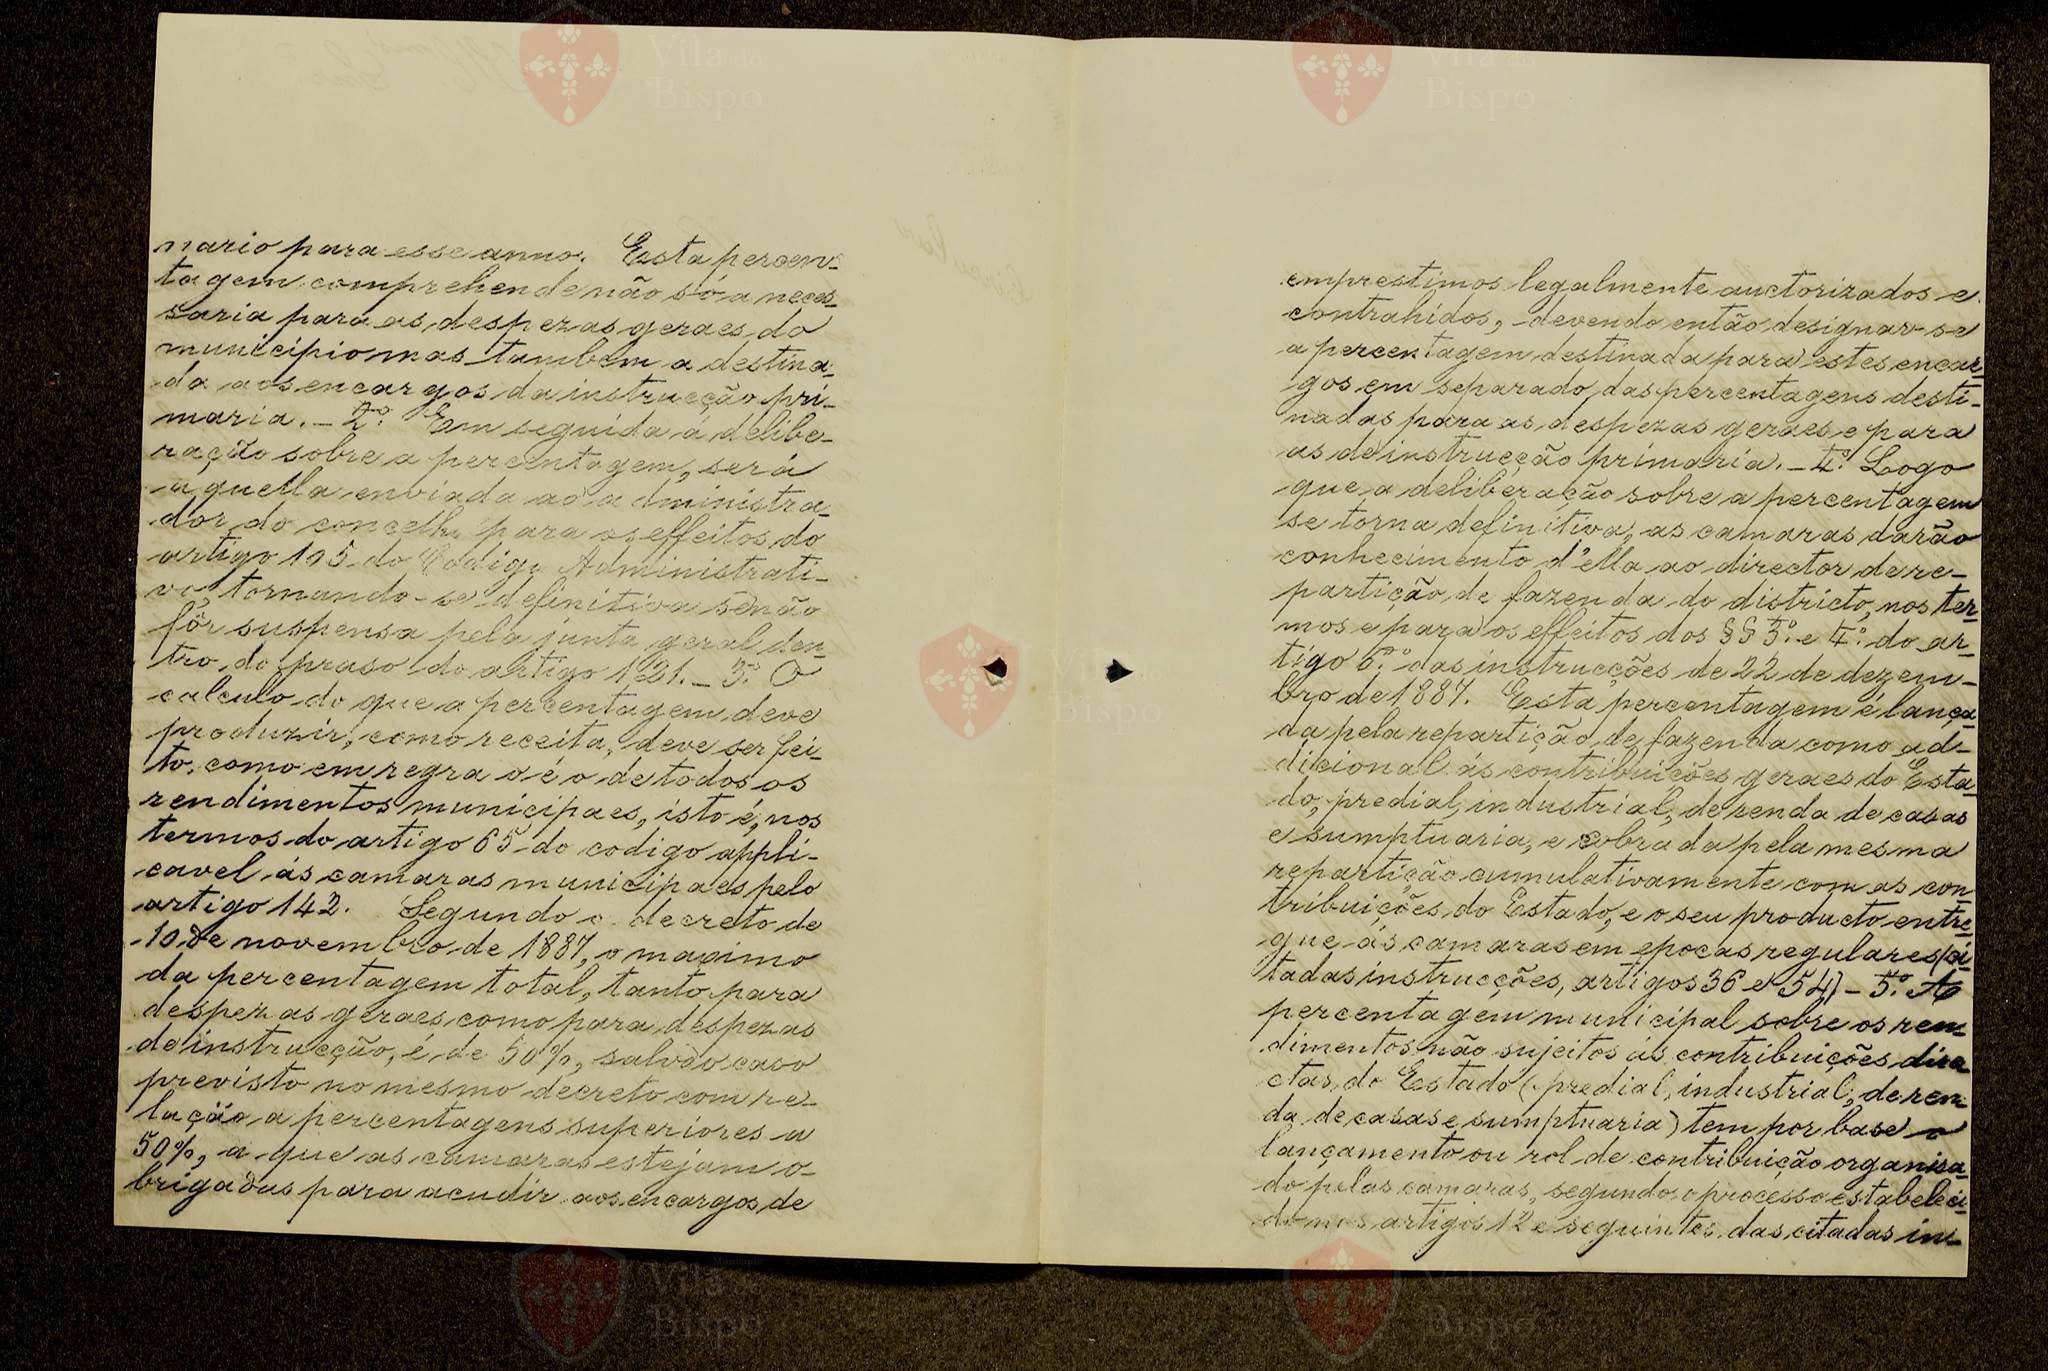 nario para esse anno. Esta percen-
tagem comprehende não só a neces-
saria para as despezas geraes do
municipio mas tambem a destina-
da aos encargos da instrucção pri-
maria. — 2.º Em seguida á delibe-
ração sobre a percentagem, será
aquella enviada ao administra-
dor do concelho para os effeitos do
artigo 105 do Codigo Administrati-
vo, tornando-se definitiva se não
fôr suspensa pela junta geral den-
tro do praso do artigo 121. — 3.º O
calculo do que a percentagem deve
produzir, como receita, deve ser fei-
to, como em regra o é o de todos os
rendimentos municipaes, isto é, nos
termos do artigo 65 do codigo appli-
cavel ás camaras municipaes pelo
artigo 142. Segundo o decreto de
10 de novembro de 1887, o maximo
da percentagem total, tanto para
despezas geraes como para despezas
de instrucção, é de 50%, salvo o caso
previsto no mesmo decreto com re-
lação a percentagens superiores a
50%, a que as camaras estejam o-
brigadas para acudir aos encargos de
emprestimos legalmente auctorizados e
contrahidos, devendo então designar-se
a percentagem destinada para estes encar-
gos em separado das percentagens desti-
nadas para as despezas geraes e para
as de instrucção primaria. — 4.º Logo
que a deliberação sobre a percentagem
se torna definitiva, as camaras darão
conhecimento d'ella ao director de re-
partição de fazenda do districto, nos ter-
mos e para os effeitos dos §§ 3.º e 4.º do ar-
tigo 6.º das instrucções de 22 de dezem-
bro de 1887. Esta percentagem é lança-
da pela repartição de fazenda como ad-
dicional ás contribuições geraes do Esta-
do, predial, industrial, de renda de casas
e sumptuaria, e cobrada pela mesma
repartição cumulativamente com as con-
tribuições do Estado, e o seu producto entre-
gue ás camaras em epocas regulares (ci-
tadas instrucções, artigos 36 e 54) — 5.º A
percentagem municipal sobre os ren-
dimentos não sujeitos ás contribuições dire-
ctas do Estado (predial, industrial, de ren-
da de casas e sumptuaria) tem por base o
lançamento ou rol de contribuição organisa-
do pelas camaras, segundo o processo estabeleci-
do nos artigos 12 e seguintes das citadas ins-
Vila do
Bispo
Vila do
Bispo
Bispo
Município
Vila do
Bispo
Vila do
Bispo